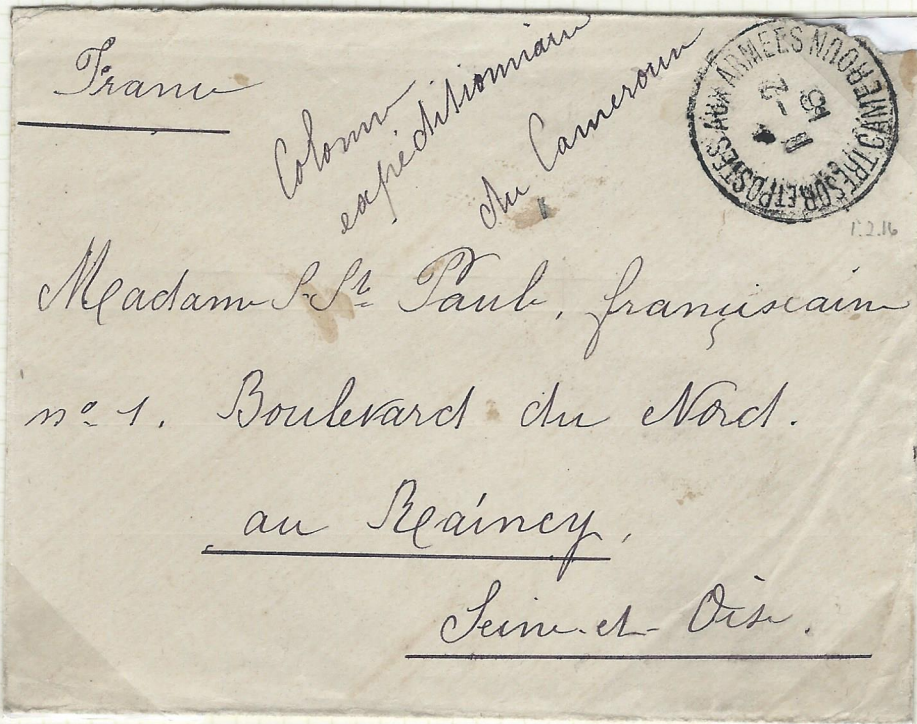 France
Colonne
expéditionnaire
du Cameroun
TRESOR ET POSTES AUX ARMEES CAMEROUN
1.2.16
Madame S-St Paul, françiscaine
no 1. Boulevard du Nord.
au Raincy,
Seine-et-Oise.